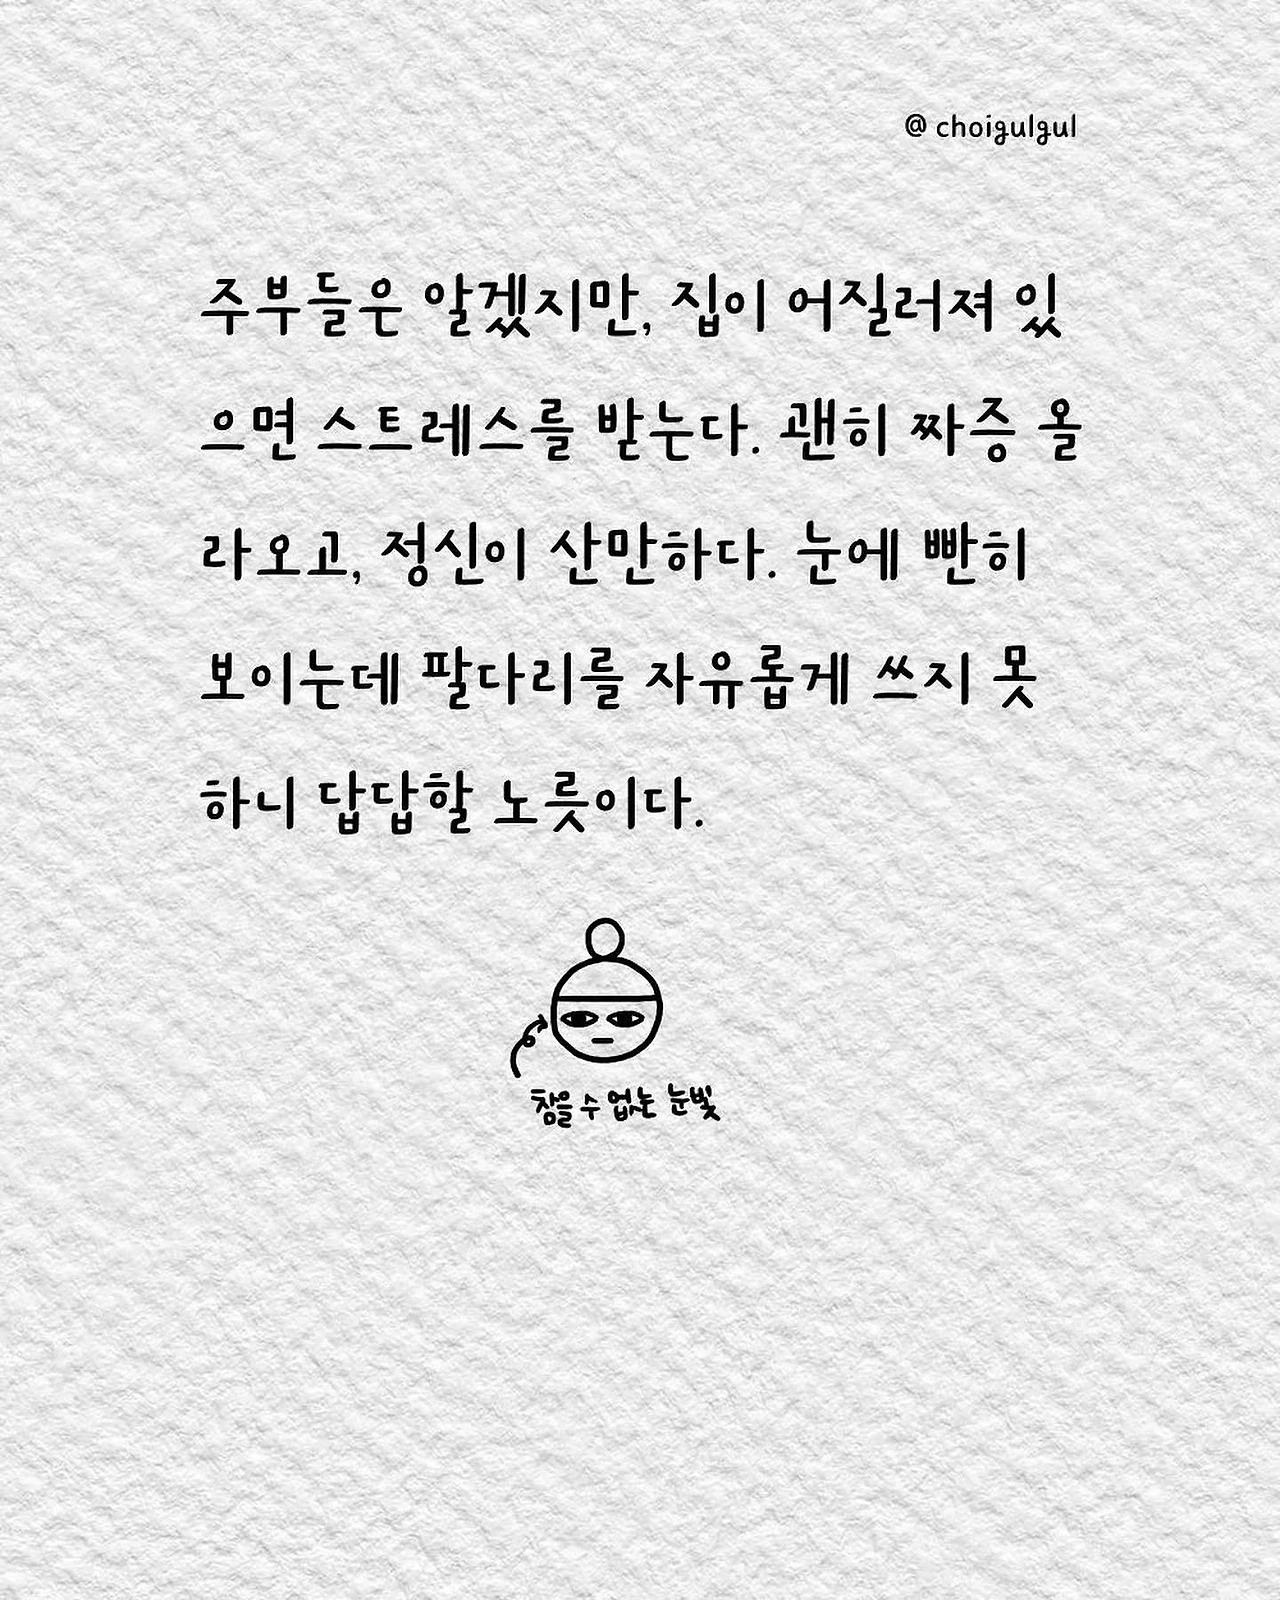 @ choigulgul
주부들은 알겠지만, 집이 어질러져 있
으면 스트레스를 받는다. 괜히 짜증 올
라오고, 정신이 산만하다. 눈에 빤히
보이는데 팔다리를 자유롭게 쓰지 못
하니 답답할 노릇이다.
참을 수 없는 눈빛